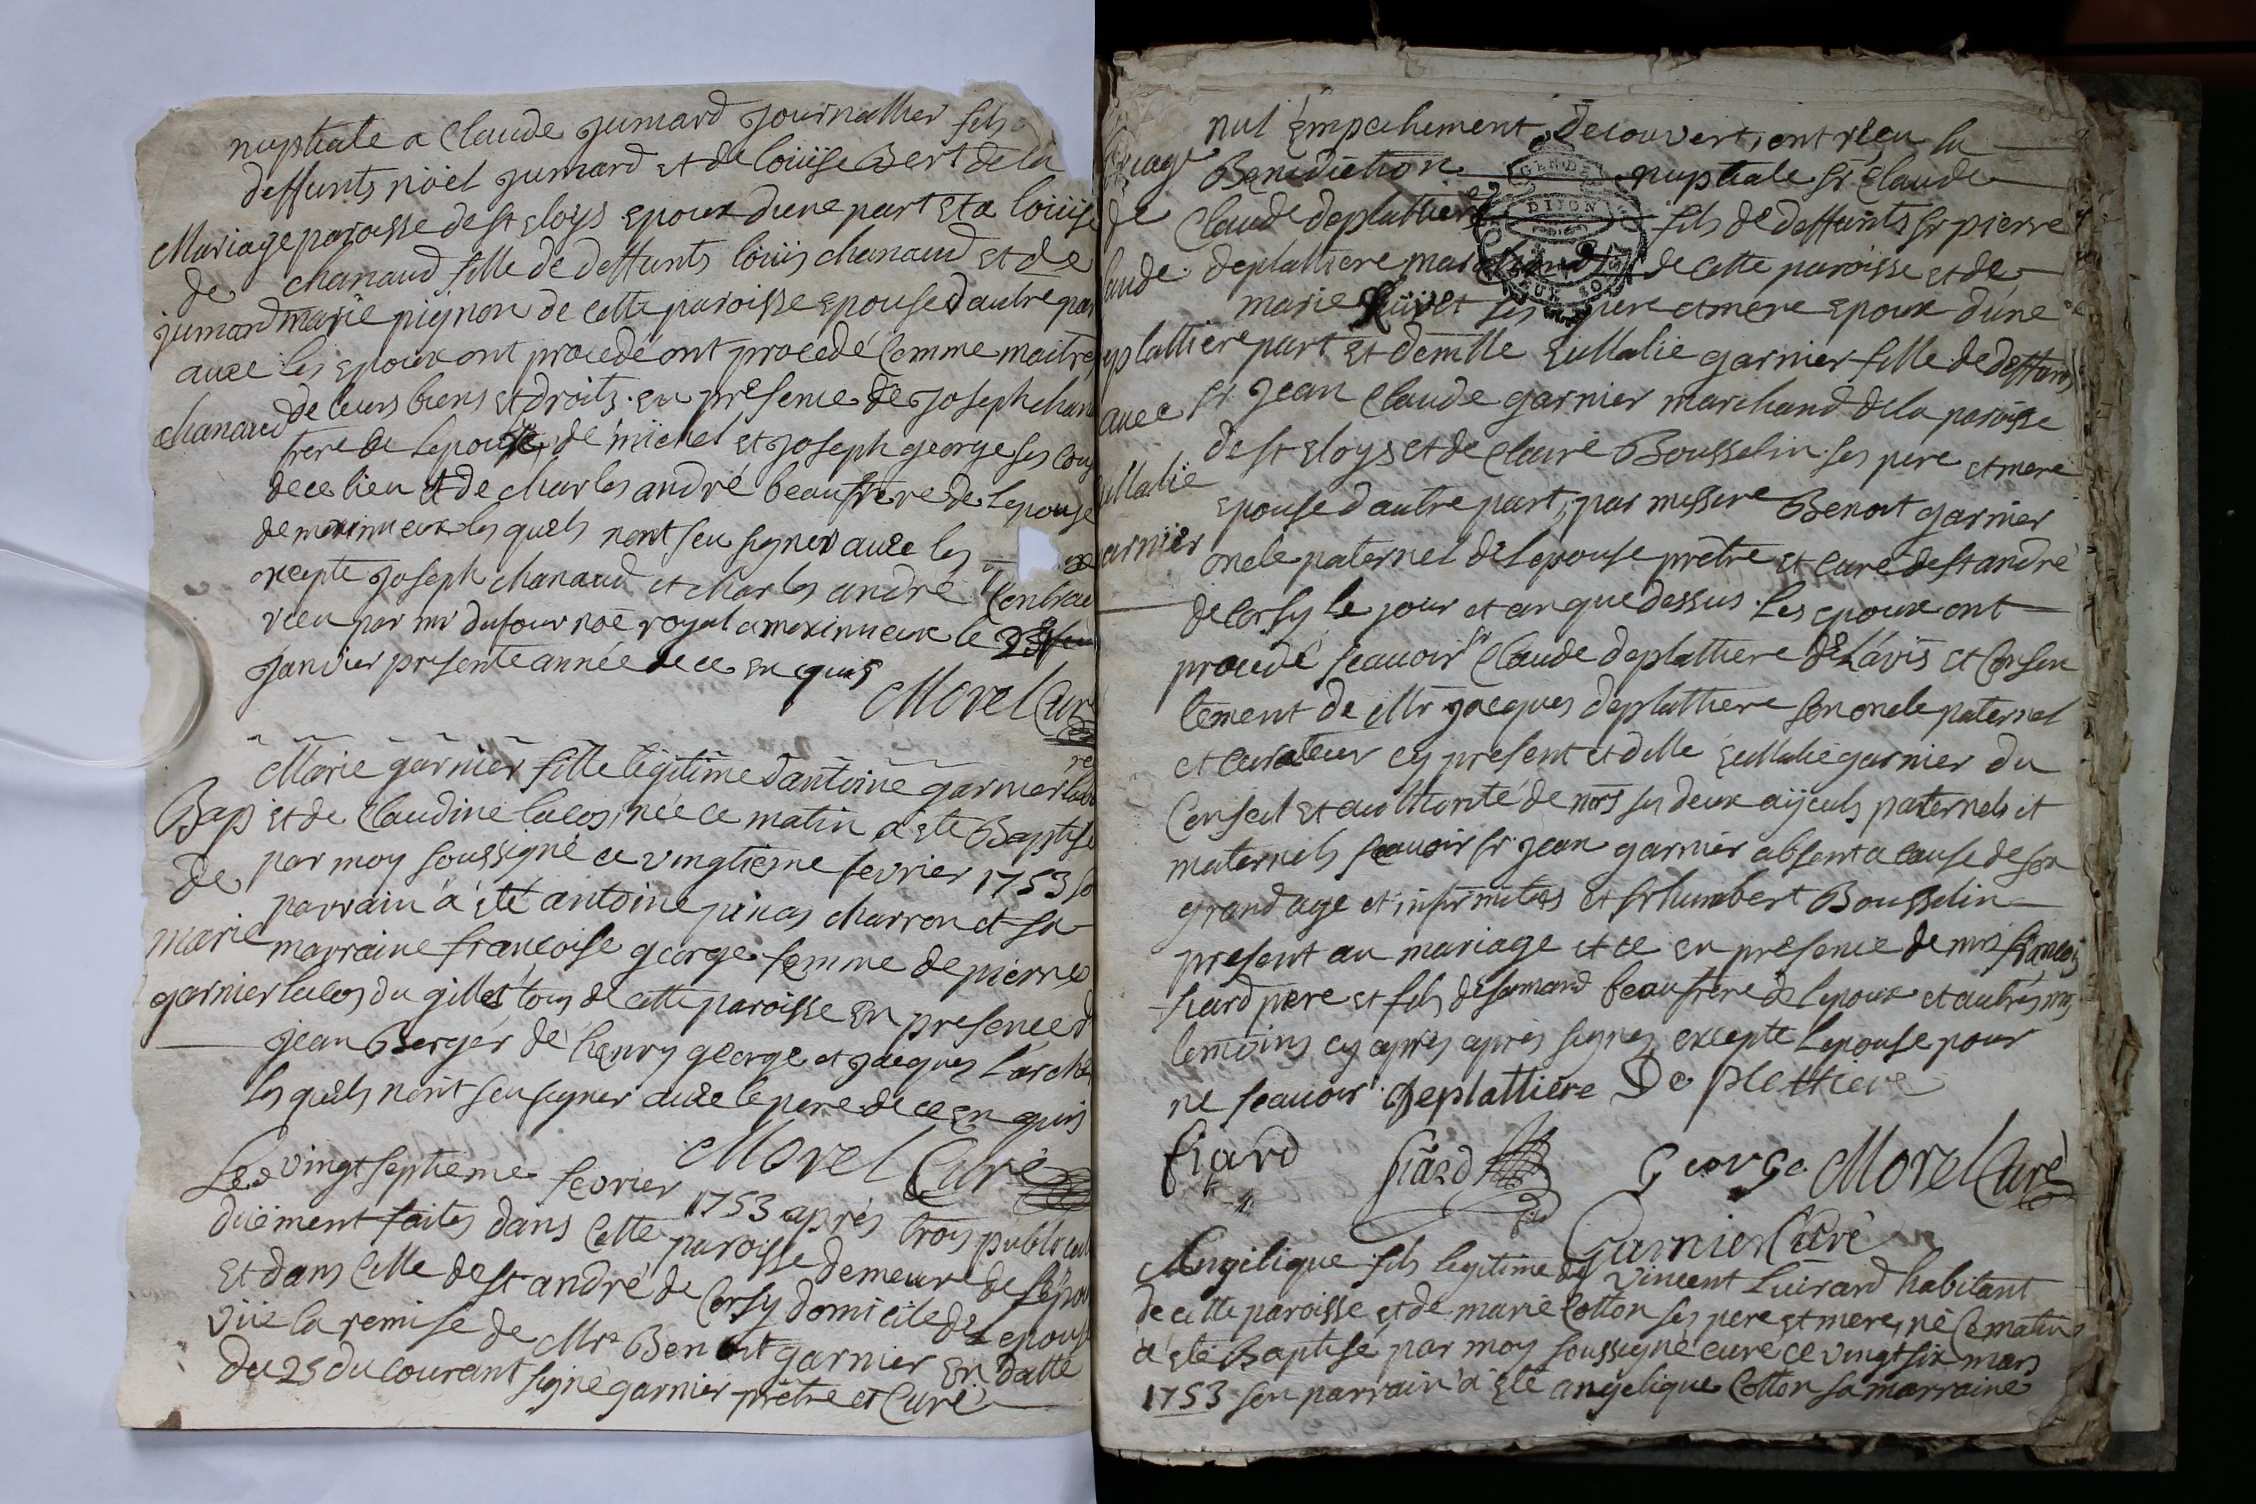 nuptiale a Claude jumard journallier fils
deffunts nöel jumard et de loüise Bert de la
Mariage paroisse de st eloys epoux dune part et a loüise
de chanaud fille de deffunts loüis chanaud et de
jumard marie pignon de cette paroisse epouse dautre par
avec les epoux ont procedé ont procedé comme maitres
chanaud de leurs biens et droits en presence de joseph chan
frere de lepouse, de michel et joseph george ses cous
de ce lieu et de charles andré beaufrere de lepouse
de meximieux les quels nont seu signer avec les
excepté joseph chanaud et charles andré Contrac
recu par mr dufour noe royal a meximieux le
janvier presente année de ce enquis
Morel Curé
Marie garnier fille legitime dantoine garnier labo
Bap et de Claudine lacos, née ce matin a eté Baptisé
de par moy soussigné ce vingtieme fevrier 1753 so
parrain a eté antoine pinas charron et sa
marie marraine francoise george femme de pierre
garnier lacos du gilles tous de cette paroisse en presence d
jean Berger de henry george et jacques Larche
les quels nont seu signer avec le pere de ce enquis
Morel Curé
Le vingt septieme fevrier 1753 après trois publicat
düement faites dans cette paroisse demeure de lepou
et dans celle de st andré de Corsy domicile de lepouse
vüe la remise de Mre Benoit garnier en datte
du 25 du courant signé garnier prêtre et Curé
nul empechement decouvert, ont recu la
Benediction nuptiale sr Claude
de Claude deplattiere fils de deffunts sr pierre
laude deplattiere marchand de cette paroisse et de
marie ses pere et mere epoux dune
eplattiere part et demlle eullalie garnier fille de deffunt
avec sr jean Claude garnier marchand de la paroisse
de st eloys et de Claire Bousselin ses pere et mere
ullalie epouse dautre part, par messire Benoit garnier
arnier oncle paternel de lepouse prêtre et curé de st andré
de Corsy le jour et an que dessus. Les epoux ont
procedé scavoir sr Claude deplattiere de lavis et consen
tement de Mr jacques deplattiere son oncle paternel
et curateur cy present et dlle eullalie garnier du
Conseil et authorité de mrs ses deux aÿeuls paternels et
maternels scavoir sr jean garnier absent a cause de son
grand age et infirmités et sr humbert Bousselin
present au mariage et ce en presence de mrs francois
fiard pere et fils beaufrere de lepoux et autres
temoins cy après après signes excepté lepouse pour
ne scavoir. Deplattiere De plattiere
fiard fiard George Morel Curé
Garnier Curé
Angelique fils legitime de vincent Luirard habitant
de cette paroisse et de marie Cotton ses pere et mere, né ce matin
a eté Baptisé par moy soussigné curé ce vingt six mars
1753 son parrain a eté angelique Cotton sa marraine